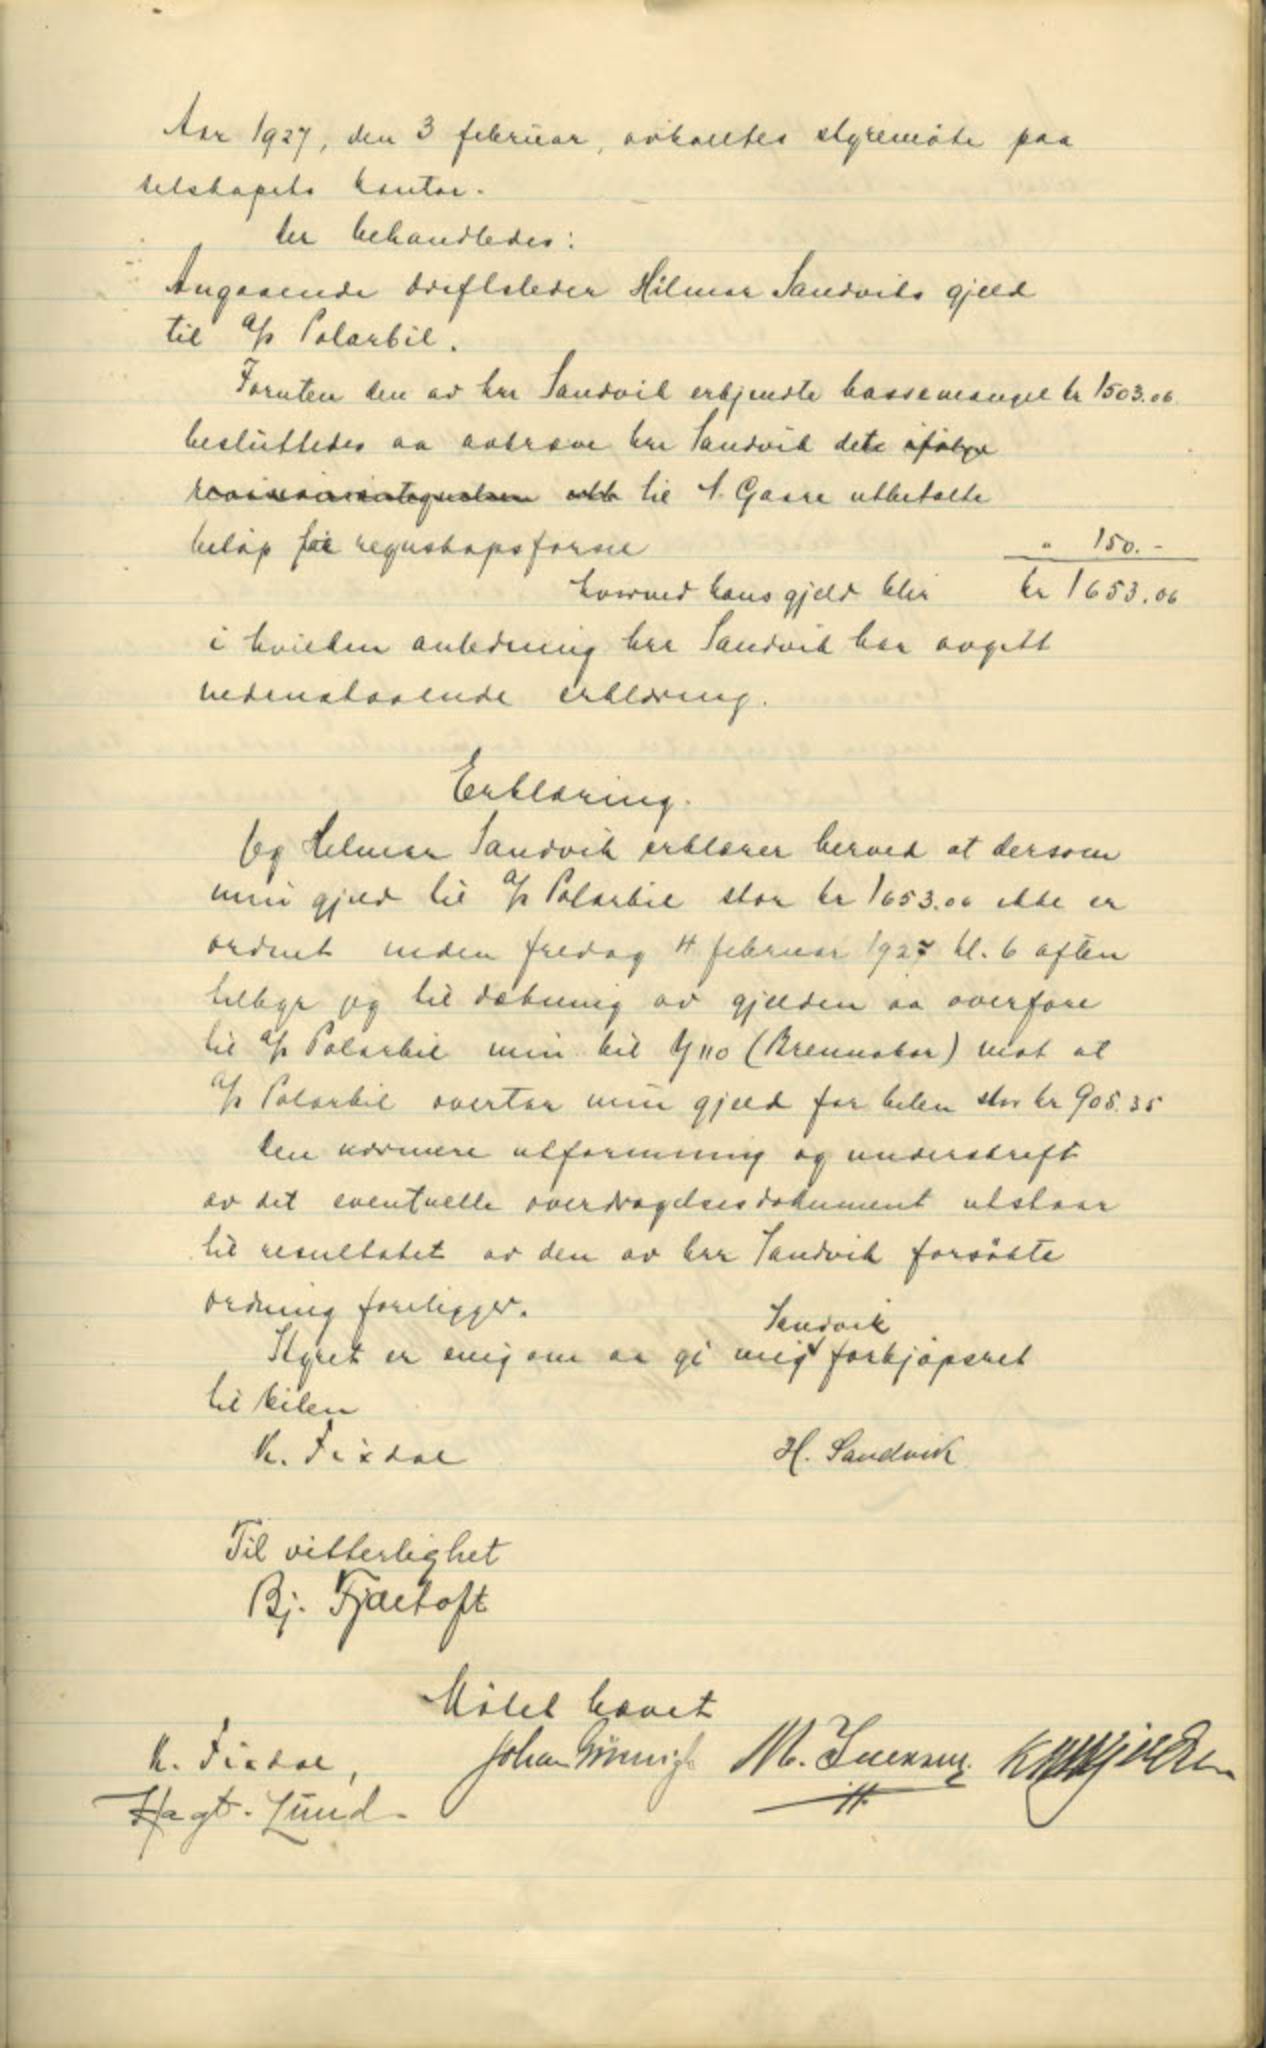 Aar 1927, den 3 februar, avholdtes styremöte paa
selskapets kontor.
Der behandledes:
Angaaende driftsleder Hilmar Sandviks gjeld
til A/S Polarbil.
Foruten den av hrr Sandvik erkjendte kassemangel kr 1503.06
besluttedes aa avkræve hrr Sandvik det ifölge
til A. Gaare utbetalte
belöp for regnskapsförsel " 150.-
hvorved hans gjeld blir kr 1653.06
i hvilken anledning hrr Sandvik har avgitt
nedenstaaende erklæring.
Erklæring.
Jeg Helmar Sandvik erklærer herved at dersom
min gjeld til A/S Polarbil stor kr 1653.06 ikke er
ordnet inden fredag 4 februar 1927 kl. 6 aften
tilbyr jeg til dækning av gjelden aa overföre
til A/S Polarbil min bil Y 110 (Brennabor) mot at
A/S Polarbil overtar min gjeld for bilen stor kr 905.35
Den nærmere utformning og underskrift
av det eventuelle overdragelsesdokument utstaar
til resultatet av den av hrr Sandvik forsökte
ordning foreligger.
Sandvik
Styret er enig om aa gi mig forkjöpsret
til bilen
K. Fixdal H. Sandvik
Til vitterlighet
Bj. Fjærtoft
Mötet hævet
K. Fixdal, Johan M. Iversen
Hagb. Lund